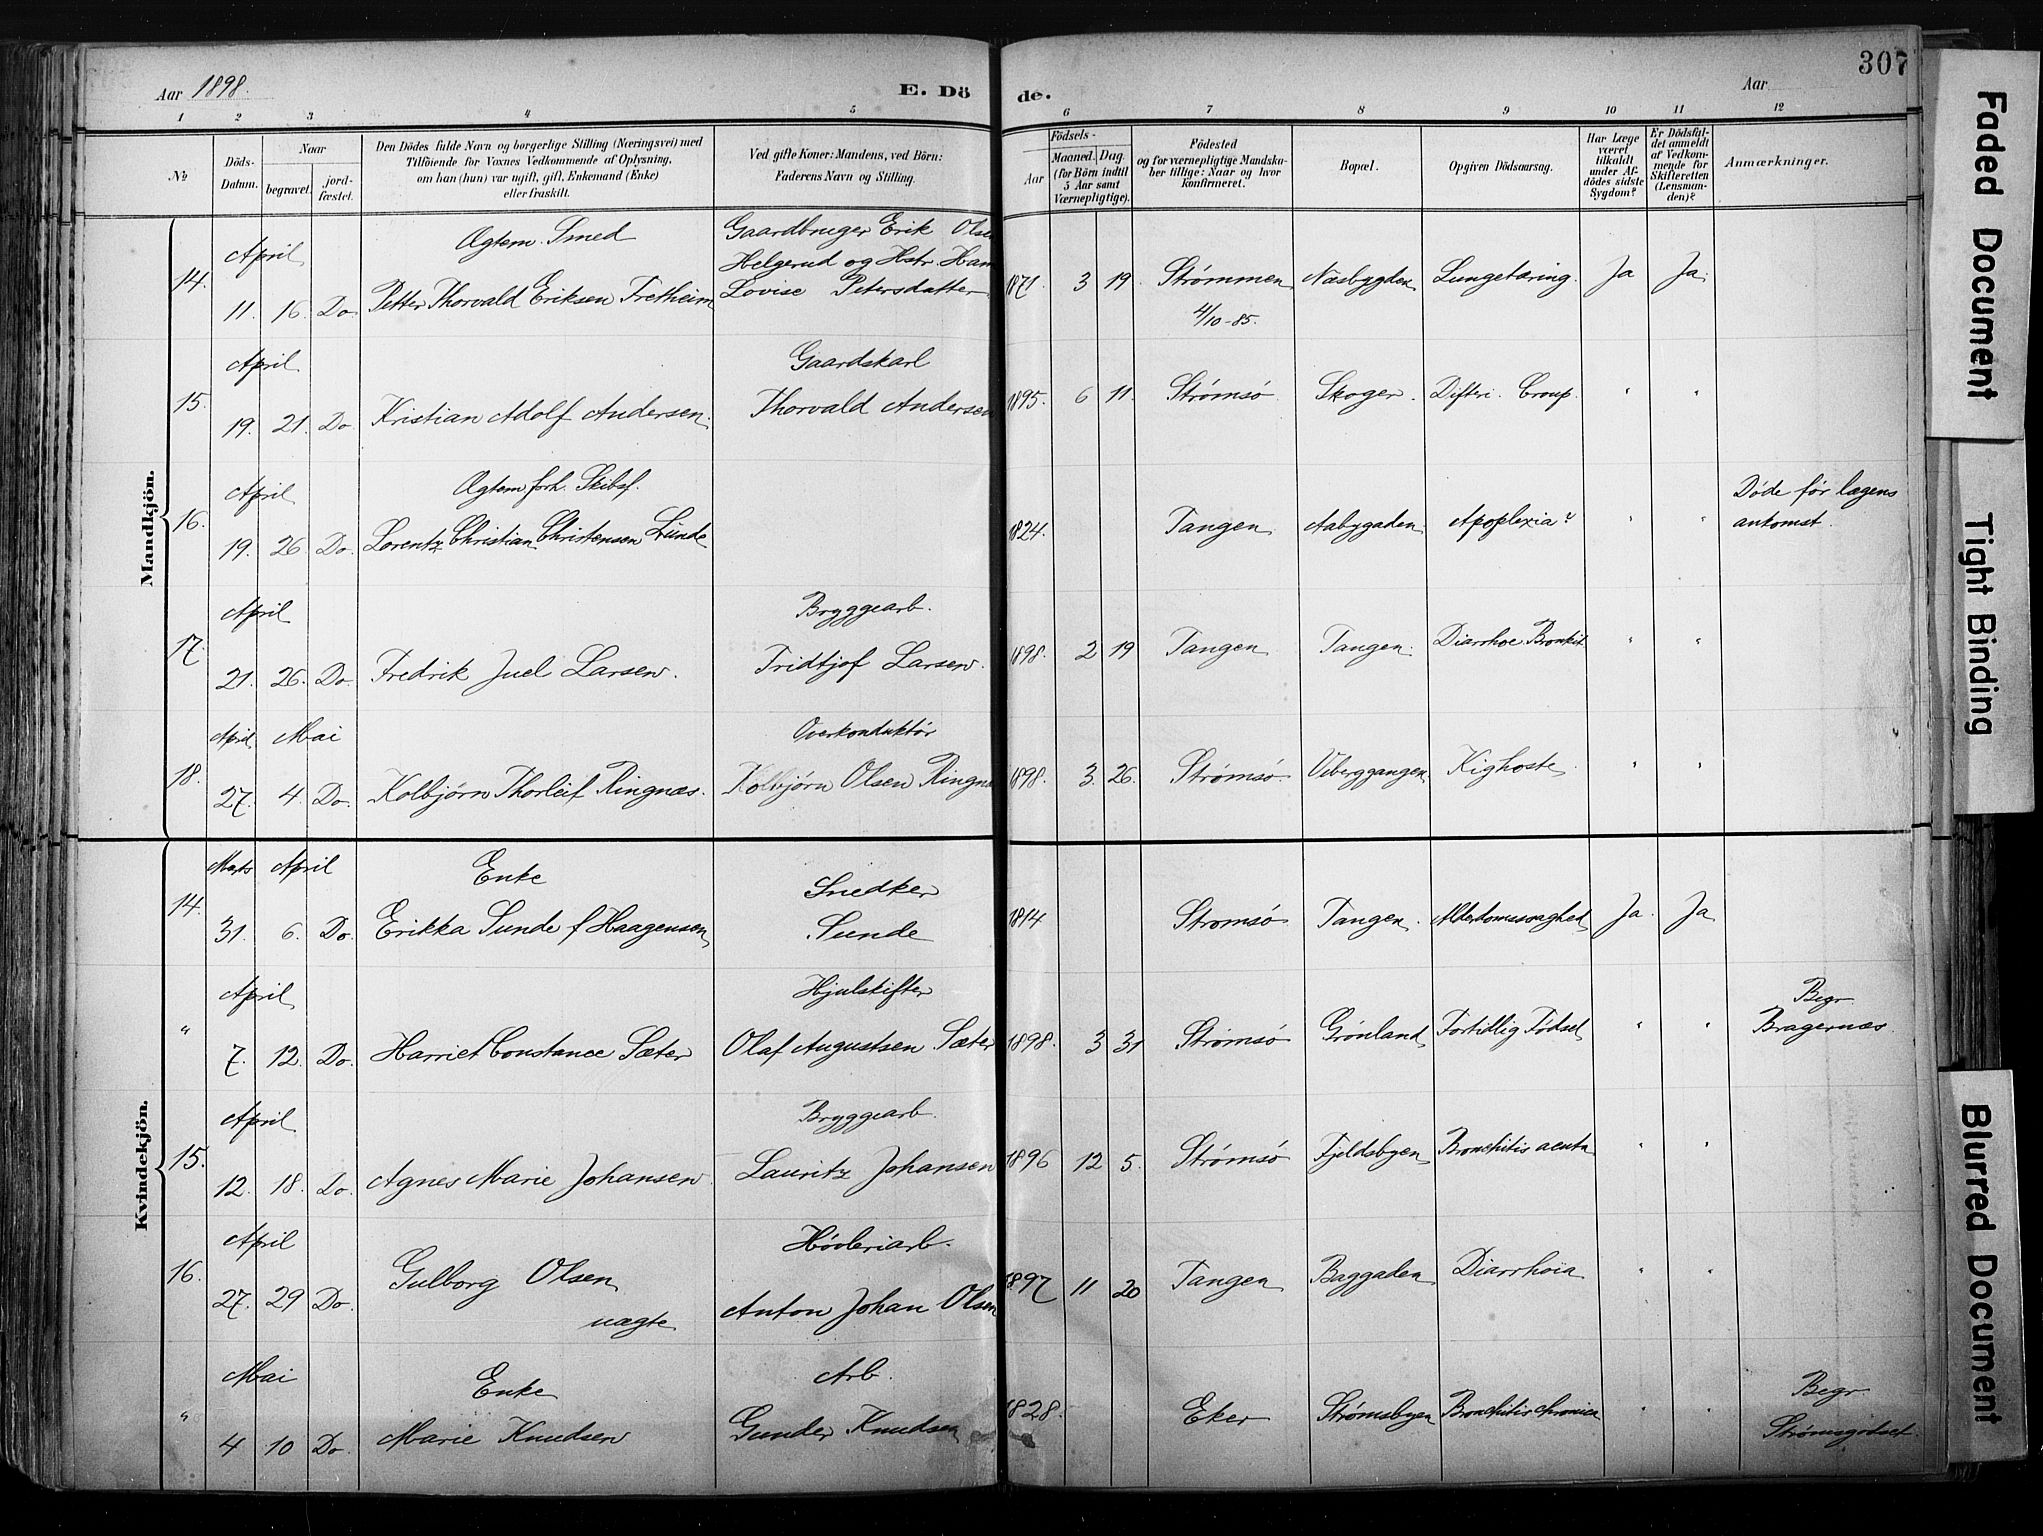 Aar 1898. E. Dö de. Aar 307
1 2 3 4 5 6 7 8 9 10 11 12
№
Döds-Datum.
Naar
begravet.
jord-fæstet.
Den Dödes fulde Navn og borgerlige Stilling (Næringsvei) med
Tilföiende for Voxnes Vedkommende af Oplysning,
om han (hun) var ugift, gift, Enkemand (Enke)
eller fraskilt.
Ved gifte Koner: Mandens, ved Börn:
Faderens Navn og Stilling.
Födsels-
Aar
Maaned. Dag.
(for Börn indtil
5 Aar samt
Værnepligtige).
Födested
og for værnepligtige Mandska-
ber tillige: Naar og hvor
konfirmeret.
Bopæl.
Opgiven Dödsaarsag.
Har Læge
været
tilkaldt
under Af-
dödes sidste
Sygdom?
Er Dödsfal-
det anmeldt
af Vedkom-
mende for
Skifteretten
(Lensman-
den)?
Anmærkninger.
Mandkjön.
April Ægtem. Smed Gaardbruger Erik Olsen
Helgerud og Hstr.
14. 11. 16. Do. Petter Thorvald Eriksen Fretheim Lovise Petersdatter 1871. 3 19. Strømmen Næsbygden Lungetæring. Ja Ja.
4/10-85.
April Gaardskarl
15. 19. 21. Do. Kristian Adolf Andersen. Thorvald Andersen 1895. 6 11. Strømsø. Skoger. Difteri. Croup. " "
April Ægtem. forh. Skibsf. Døde før lægens
16. 19. 26. Do. Lorentz Christian Christensen Lunde 1824. Tangen Aabygaden Apoplexia? " " ankomst.
April Bryggearb.
17. 21. 26. Do. Fredrik Juel Larsen. Fridtjof Larsen. 1898. 2 19 Tangen Tangen. Diarrhoe Bronkit. " "
April Mai Overkonduktör
18. 27. 4. Do. Kolbjörn Thorleif Ringnæs. Kolbjörn Olsen Ringnæs 1898. 3. 26. Strømsø. Viberggangen Kighoste " "
Kvindekjön.
Marts April Enke Snedker
14. 31. 6. Do. Erikka Sunde f Haagensen Sunde 1814 Strømsø Tangen. Alderdomssvaghed Ja. Ja
April Hjulskifter Begr.
" 7. 12. Do. Harriet Constance Sæter Olaf Augustsen Sæter 1898. 3 31 Strømsø Grønland Fortidlig Fødsel " " Bragernæs.
April Bryggearb.
15. 12. 18. Do. Agnes Marie Johansen. Lauritz Johansen 1896 12 5. Strømsø Fjeldsbyen Bronchitis acuta " "
April Høvleriarb.
16. 27. 29 Do. Gulborg Olsen Anton Johan Olsen 1897 11 20 Tangen Baggaden Diarrhoia " "
uægte
Mai Enke Arb. Begr.
" 4 10 Do. Marie Knudsen Gunder Knudsen 1828. Eker Strømsbyen Bronchitis chronica " " Strømsgodset.
Faded Document
Tight Binding
Blurred Document